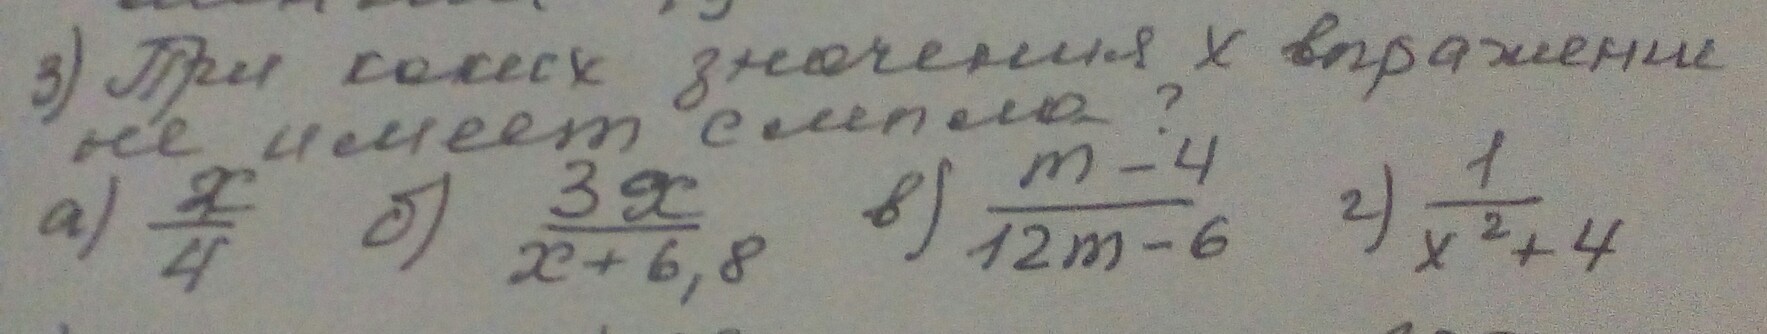 3) При каких значения х выражение
не имеет смысла?
а) x/4 б) 3x/(x+6,8) в) (m-4)/(12m-6) г) 1/(x²+4)